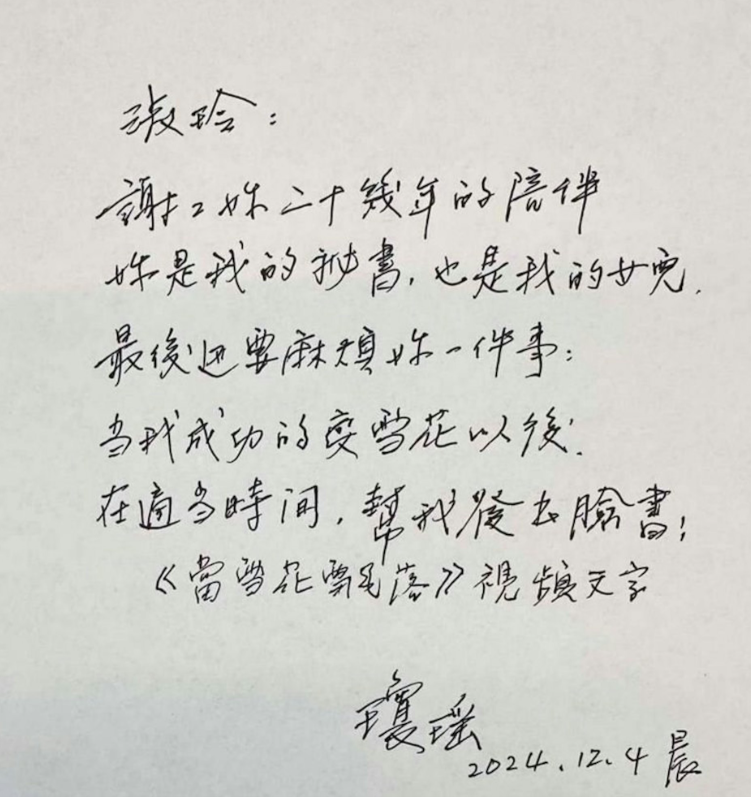 淑玲：
謝々妳二十幾年的陪伴
妳是我的秘書，也是我的女兒．
最後还要麻煩妳一件事：
当我成功的变雪花以後．
在適当時间，幫我發去臉書；
《當雪花飄落》視頻文字
瓊瑤
2024.12.4 晨